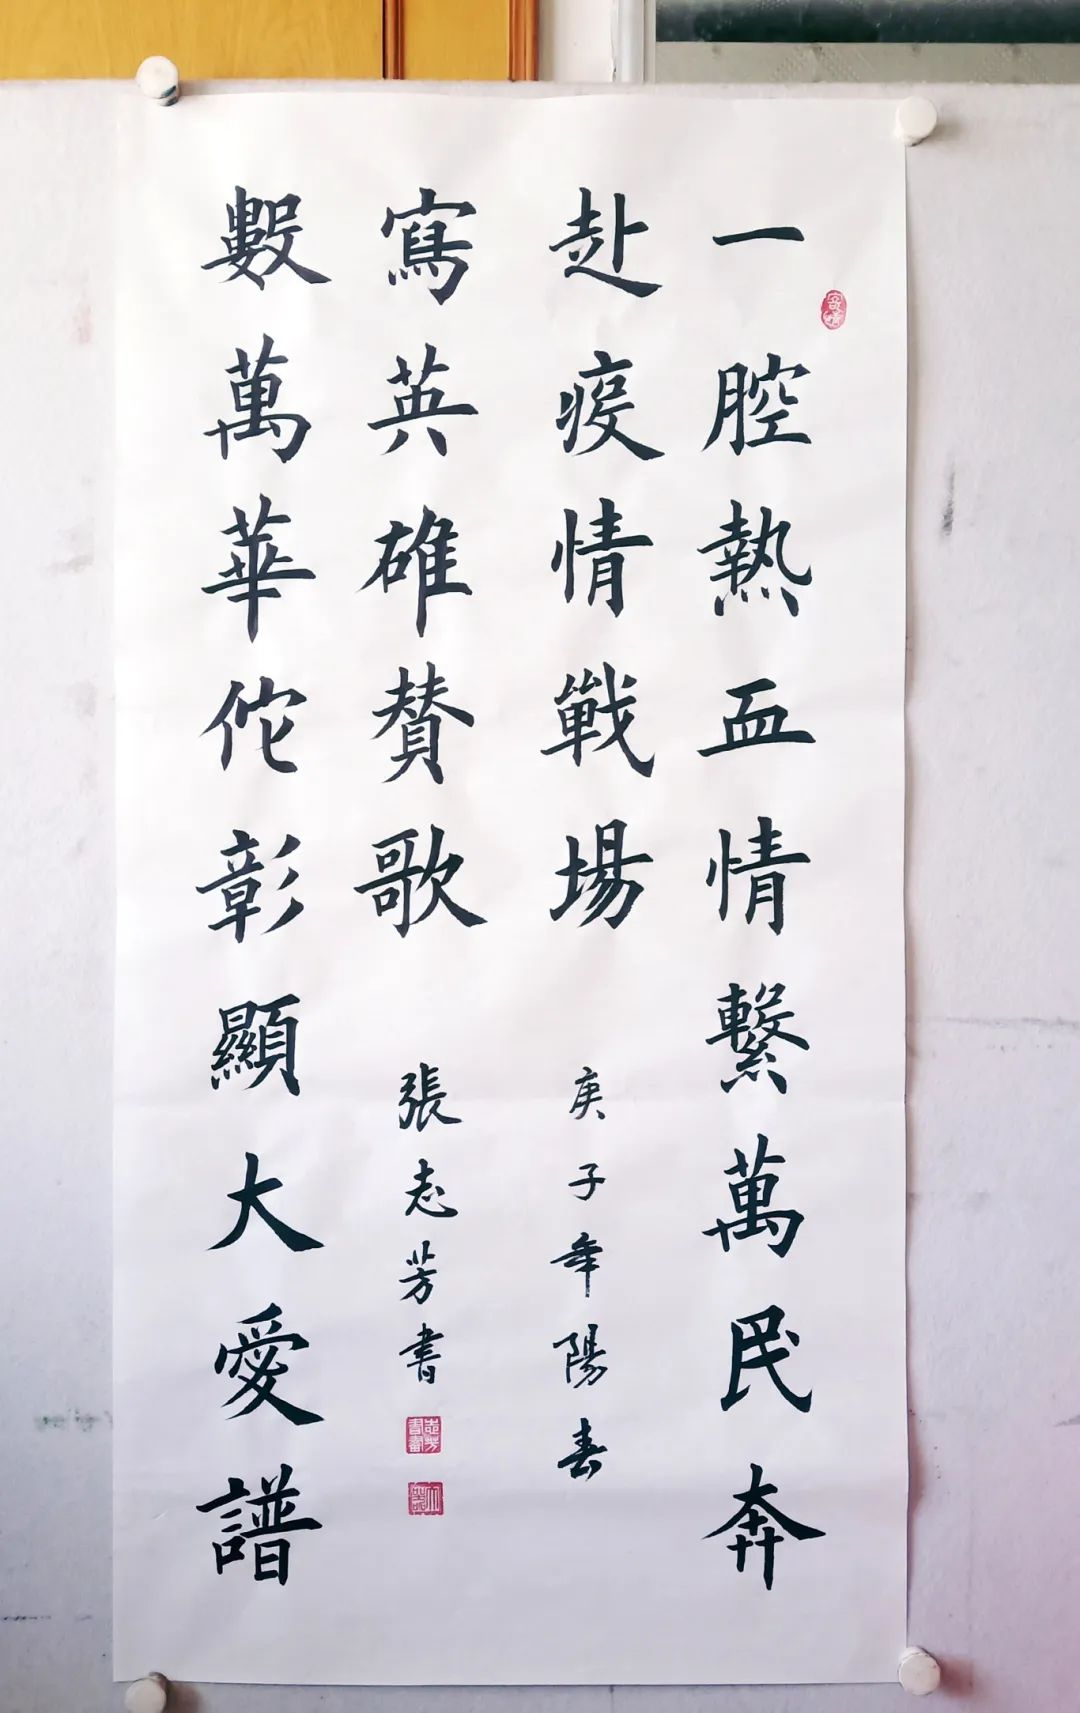 一腔熱血情繫萬民奔
赴疫情戰場
數萬華佗彰顯大愛譜
寫英雄賛歌
庚子年陽春
張志芳書
志芳書畫